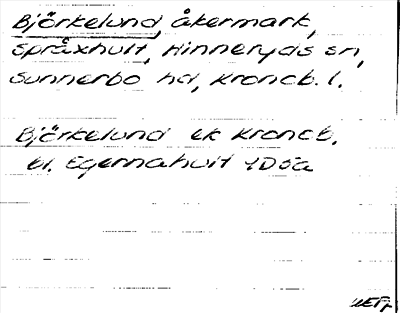 Björkelund, åkermark,
Språxhult, Hinneryds sn,
Sunnerbo hd, Kronob. l.
Björkelund ek Kronob.
bl. Egernahult 4D5a